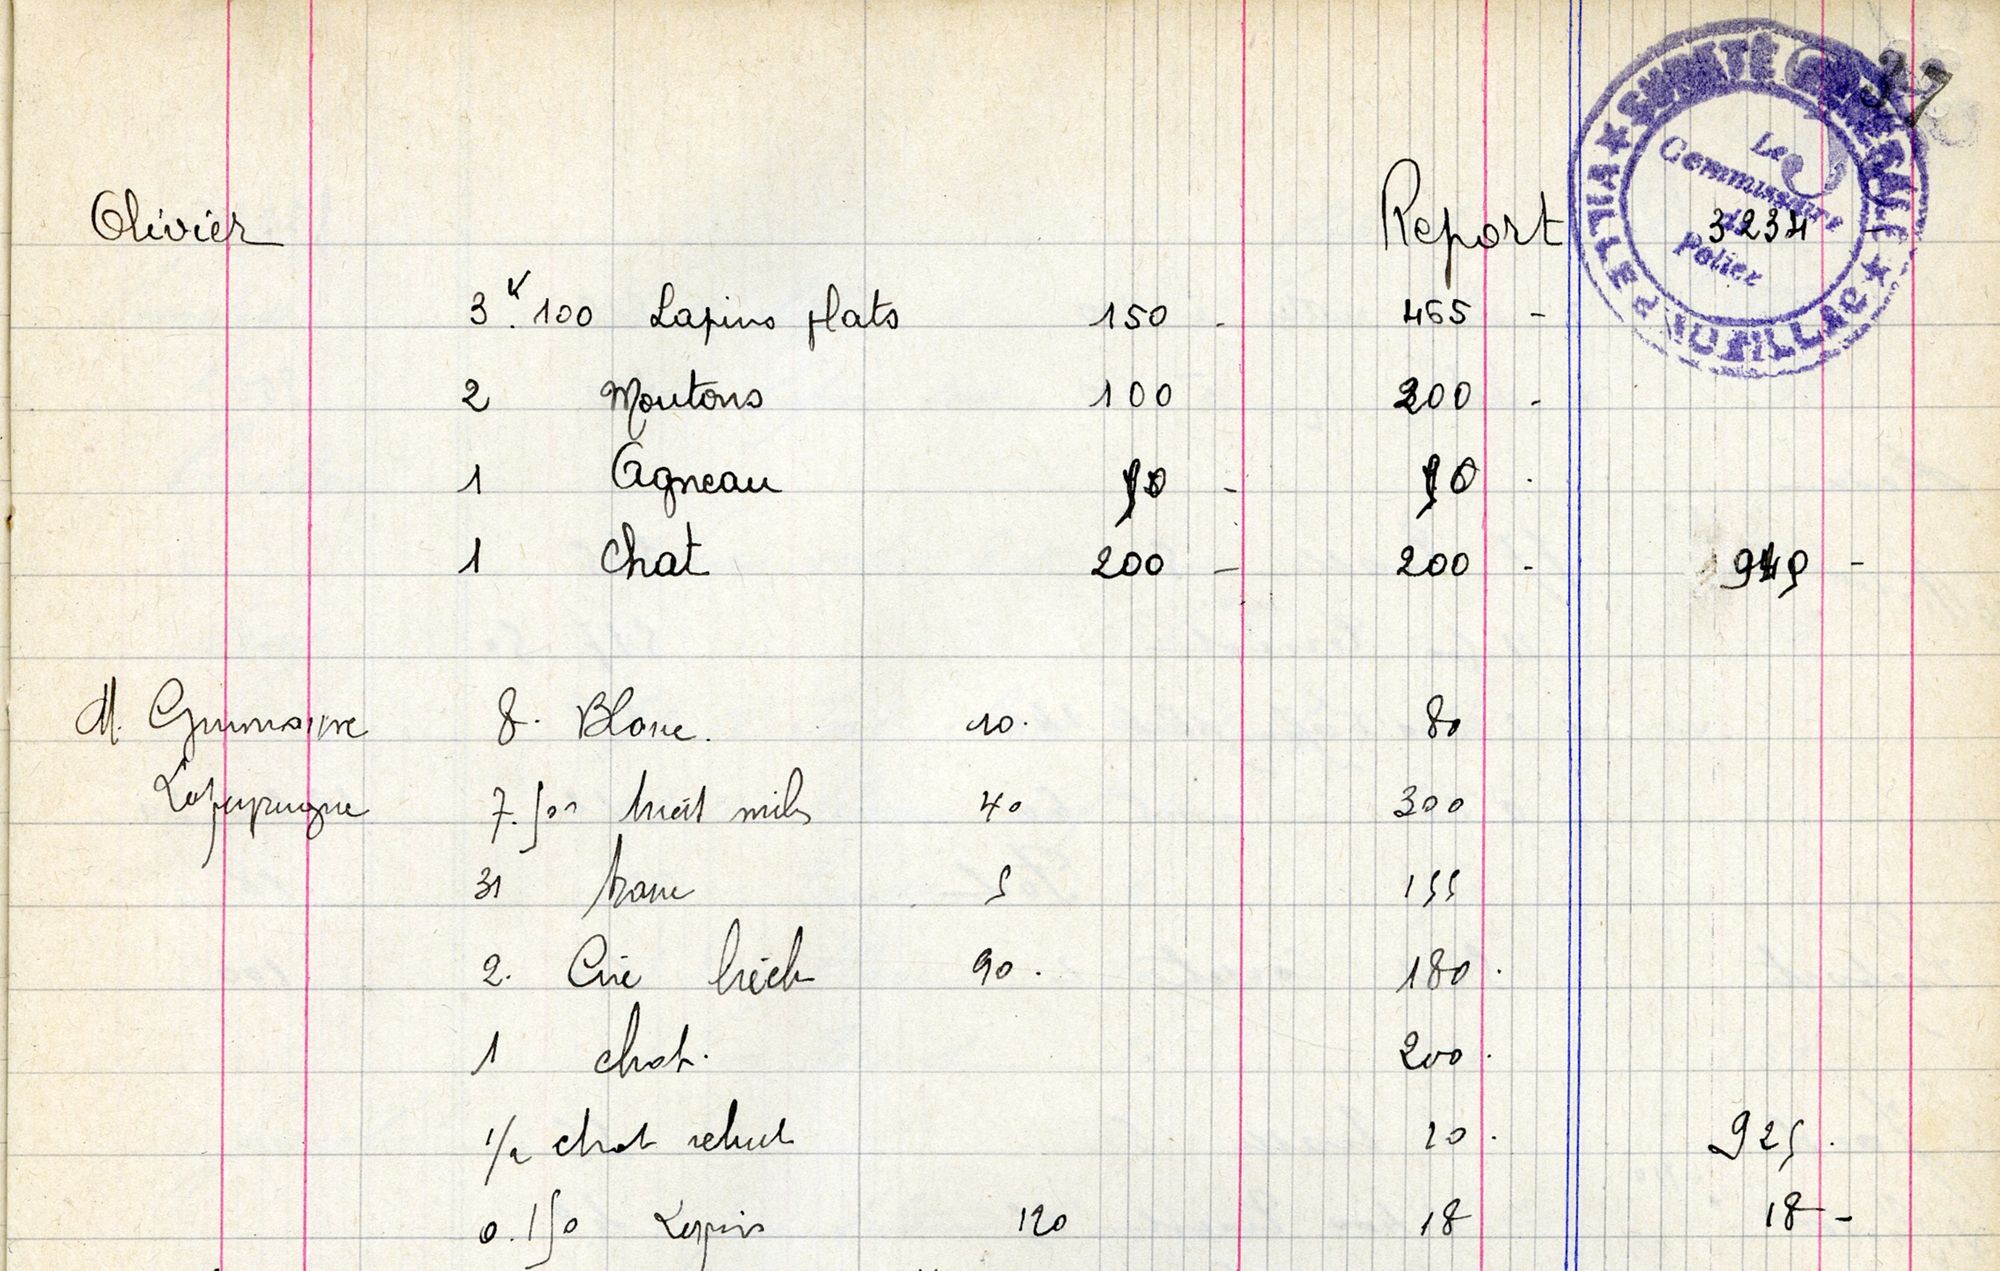 37
SURETÉ GÉNÉRALE
VILLE DE MUSILLAC
Le
Commissaire
de
Police
Olivier Report 3234 -
3 K. 100 Lapins plats 150 - 465 -
2 Moutons 100 200 -
1 Agneau 90 - 90 -
1 Chat 200 - 200 - 945 -
M. 8. Blanc. 10. 80
7. 500 40 300
31 5 155
2. 90. 180.
1 chat. 200.
1/2 chat rebut 10. 925.
0.150 Lapins 120 18 18 -